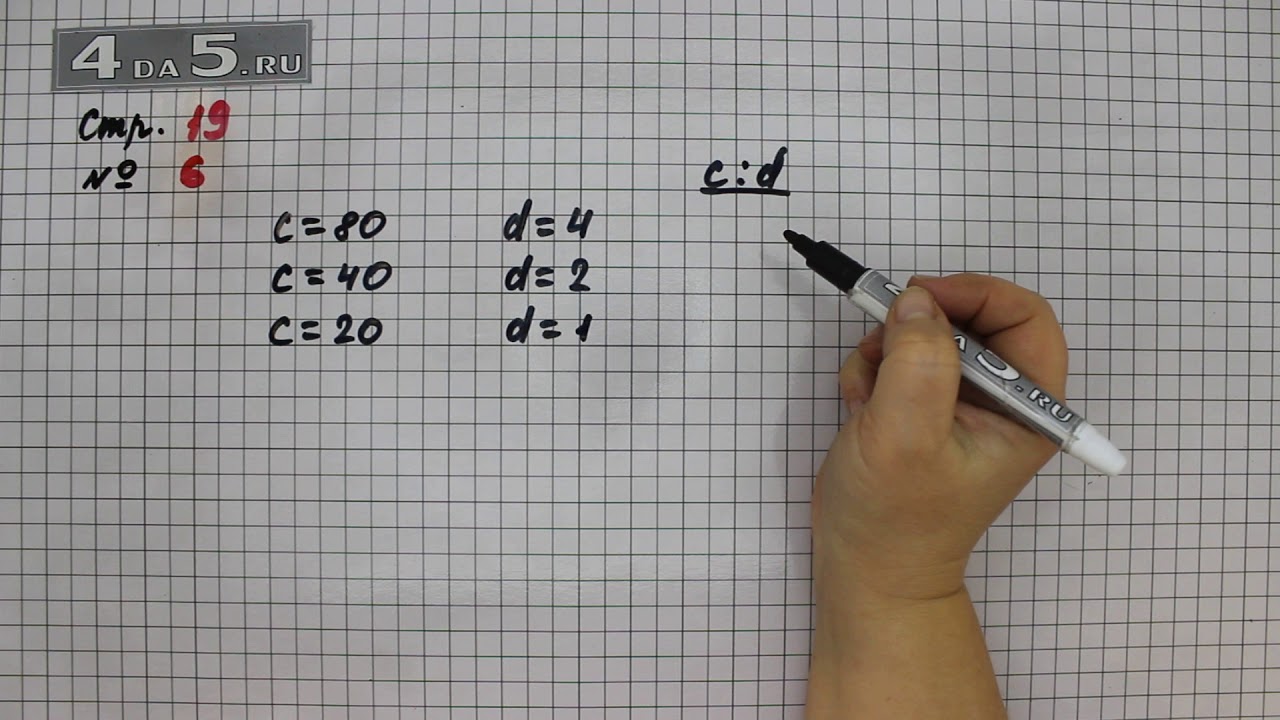 4 DA 5.RU
Стр. 19
№ 6
c:d
c = 80 d = 4
c = 40 d = 2
c = 20 d = 1
5.RU